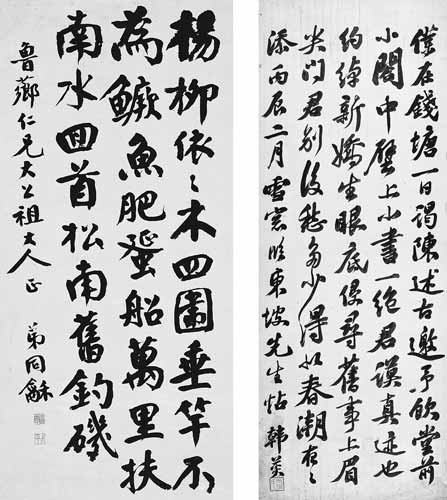 楊柳依〻木四圍垂竿不
為鱖魚肥蜑船萬里扶
南水回首松南舊釣磯
魯薌仁兄大公祖大人正
弟同龢
僕在錢塘一日謁陳述古邀予飲堂前
小閣中壁上小書一絕君謨真迹也
約綽新嬌生眼底侵尋舊事上眉
尖問君別後愁多少得似春潮夜〻
添丙辰二月雪窗臨東坡先生帖 韓菼